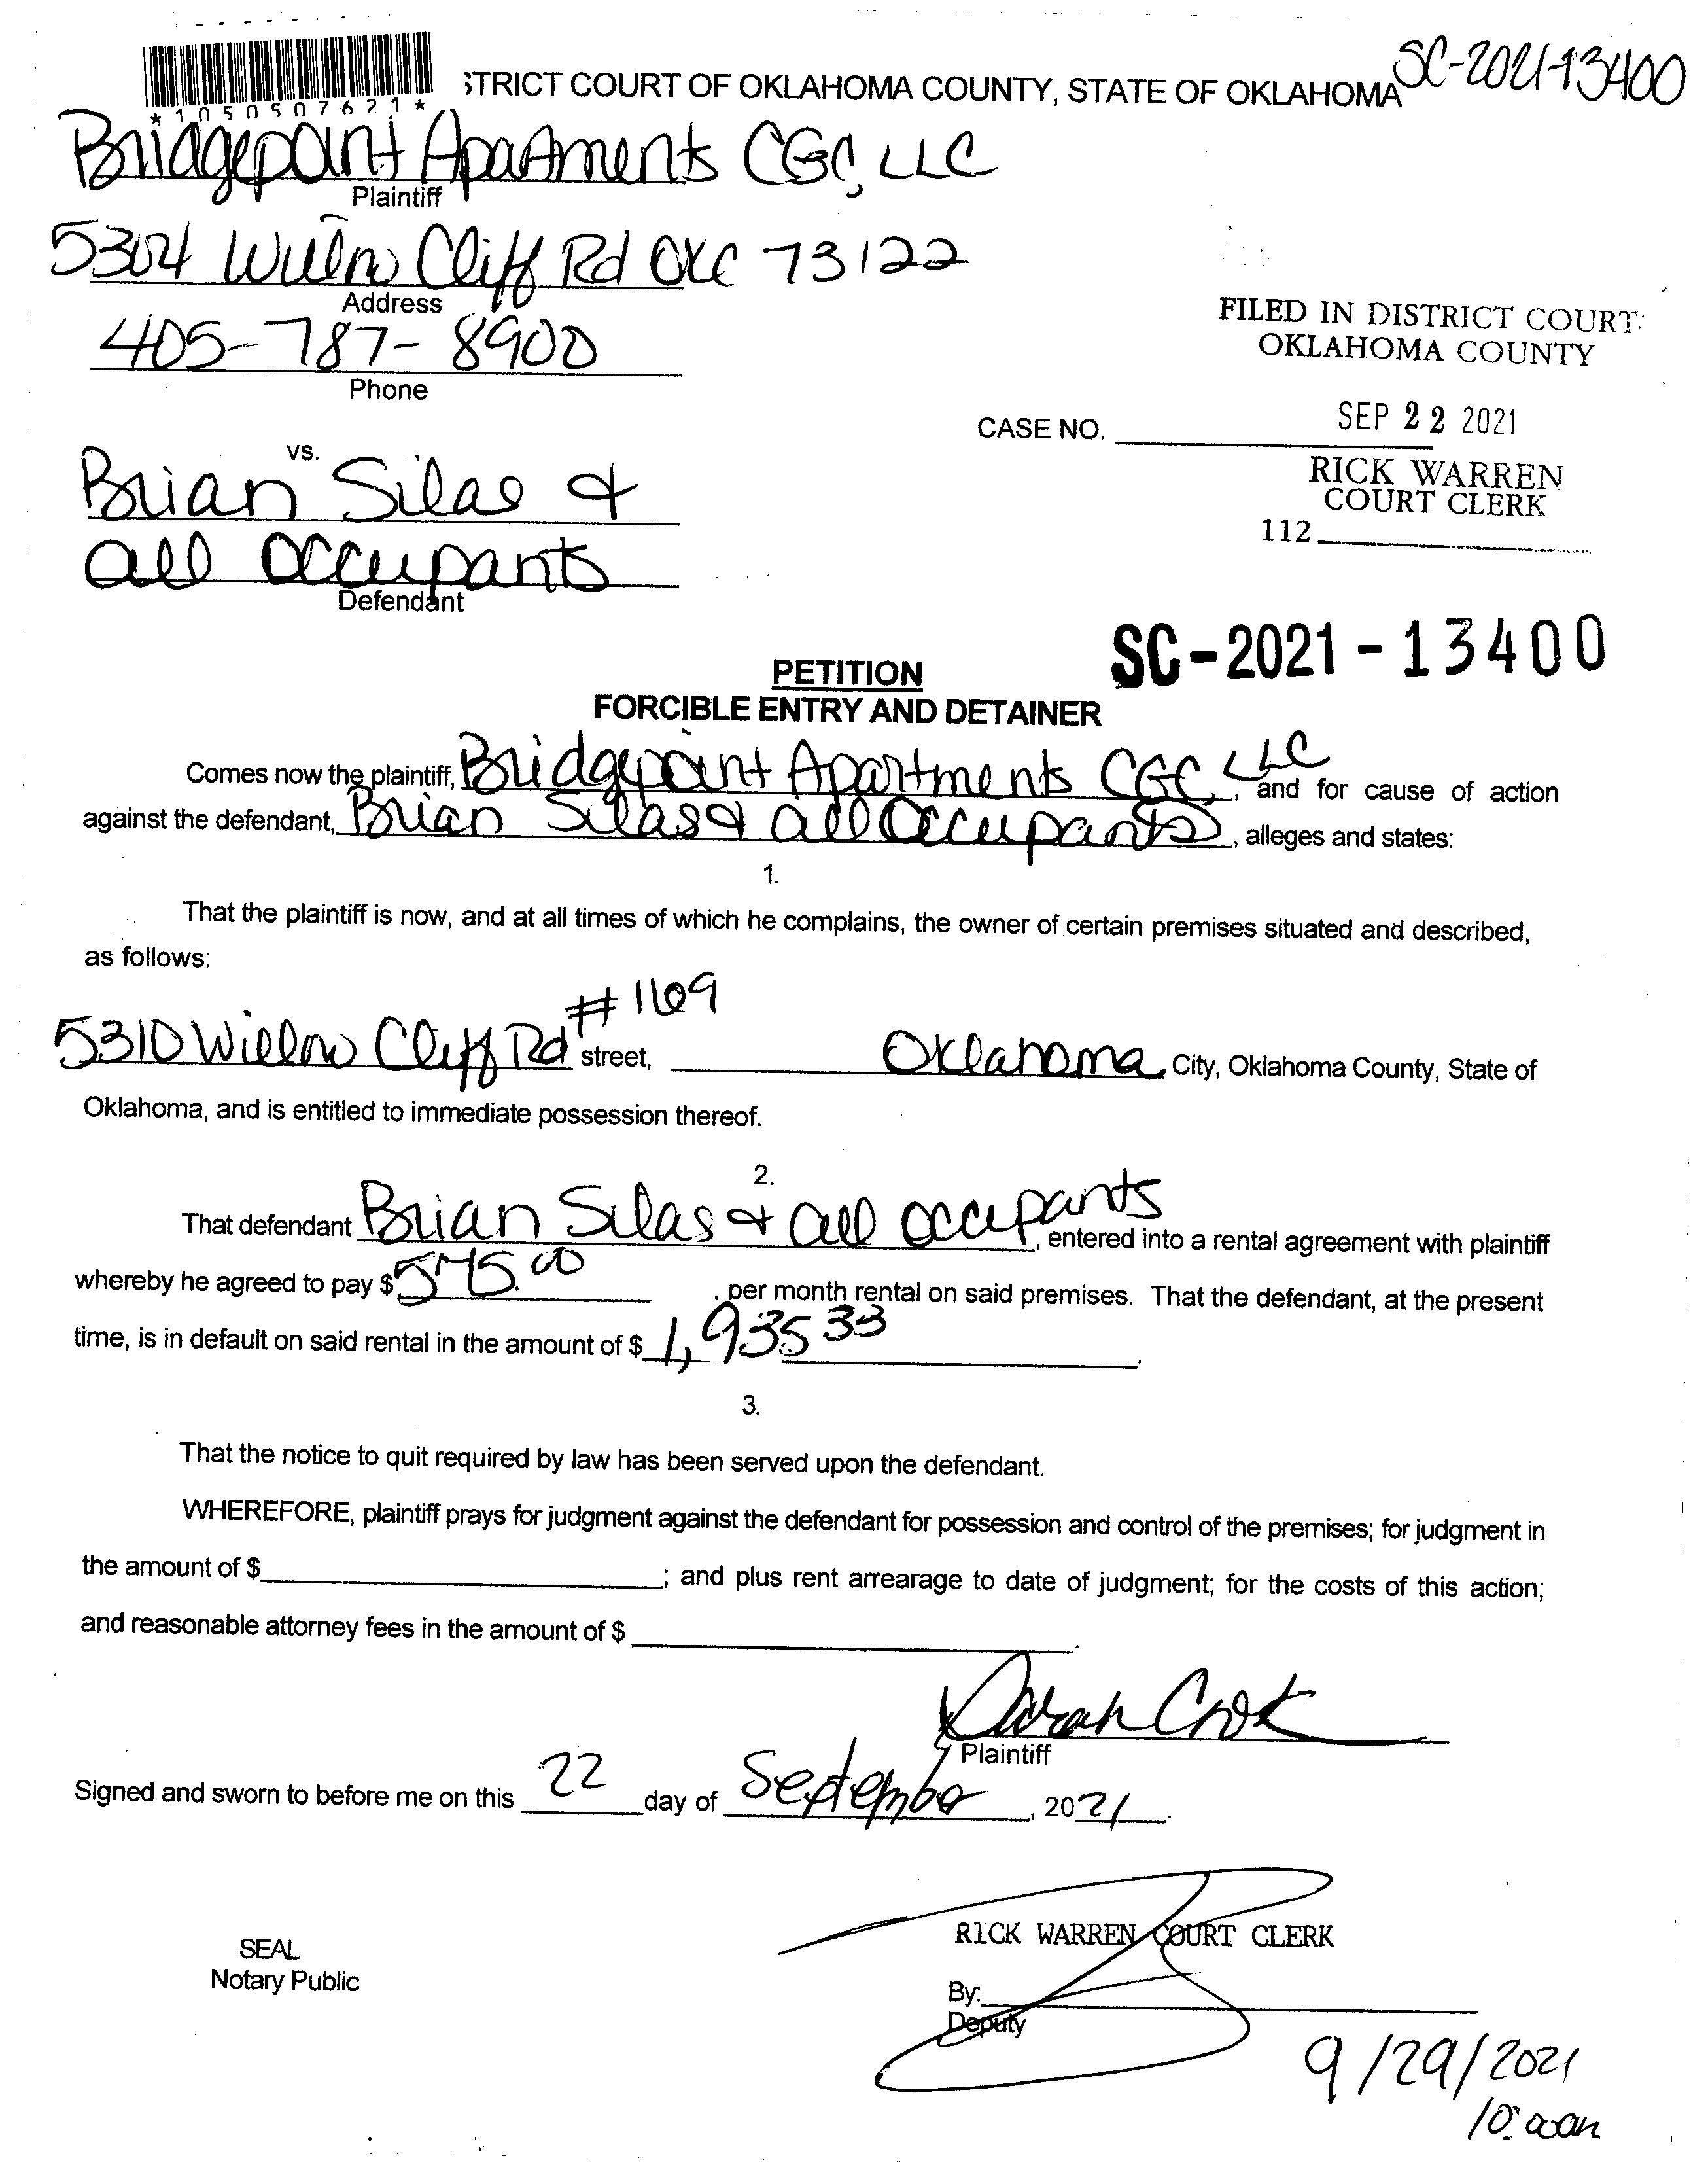 SC-2021-13400
STRICT COURT OF OKLAHOMA COUNTY, STATE OF OKLAHOMA
*1050507621*
Bridgepoint Apartments CGC, LLC
Plaintiff
5304 Willow Cliff Rd OKC 73122
Address
405-787-8900
Phone
FILED IN DISTRICT COURT
OKLAHOMA COUNTY
SEP 22 2021
CASE NO.
RICK WARREN
COURT CLERK
112
vs.
Brian Silas &
all occupants
Defendant
SC-2021-13400
PETITION
FORCIBLE ENTRY AND DETAINER
Comes now the plaintiff, Bridgepoint Apartments CGC, LLC, and for cause of action
against the defendant, Brian Silas & all Occupants, alleges and states:
1.
That the plaintiff is now, and at all times of which he complains, the owner of certain premises situated and described,
as follows:
5310 Willow Cliff Rd #169 street, Oklahoma City, Oklahoma County, State of
Oklahoma, and is entitled to immediate possession thereof.
2.
That defendant Brian Silas & all occupants, entered into a rental agreement with plaintiff
whereby he agreed to pay $575.00 . per month rental on said premises. That the defendant, at the present
time, is in default on said rental in the amount of $1,935 33.
3.
That the notice to quit required by law has been served upon the defendant.
WHEREFORE, plaintiff prays for judgment against the defendant for possession and control of the premises; for judgment in
the amount of $ ; and plus rent arrearage to date of judgment; for the costs of this action;
and reasonable attorney fees in the amount of $ .
Sarah Cook
Plaintiff
Signed and sworn to before me on this 22 day of September, 2021.
SEAL
Notary Public
RICK WARREN COURT CLERK
By:
Deputy
9/29/2021
10:00am